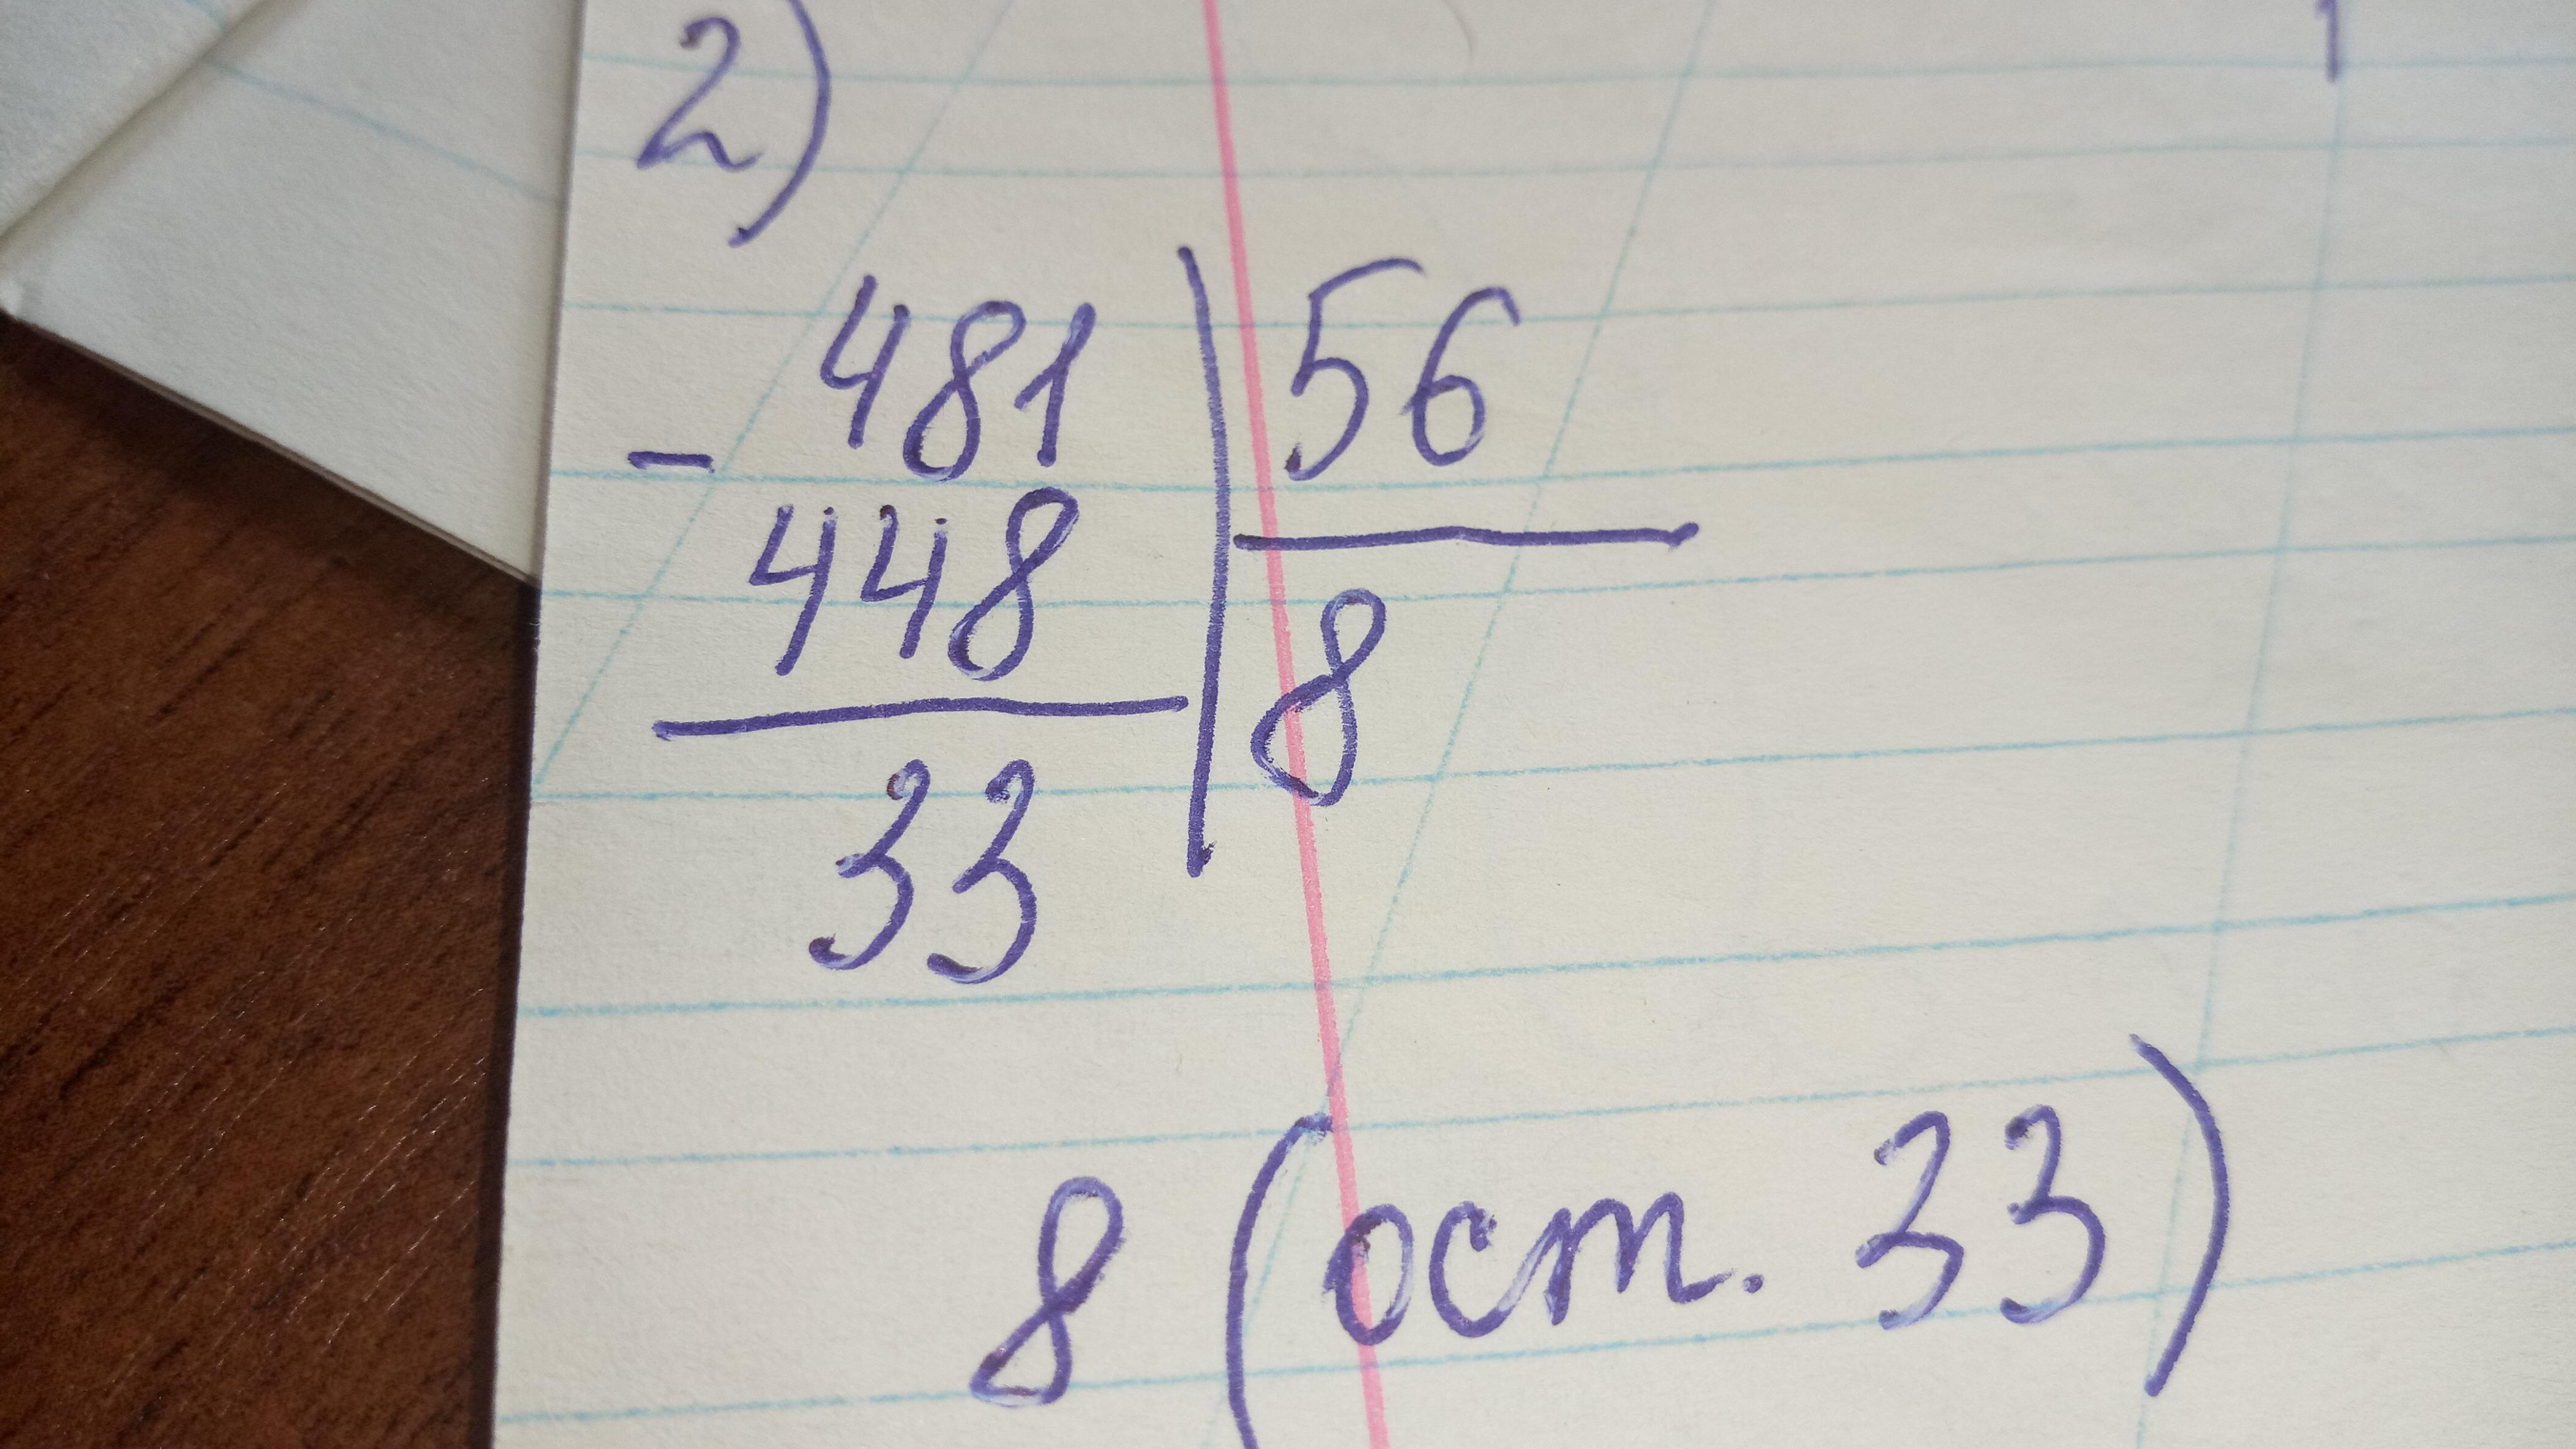 2)
481 | 56
- 448 | 8
33
8 (ост. 33)